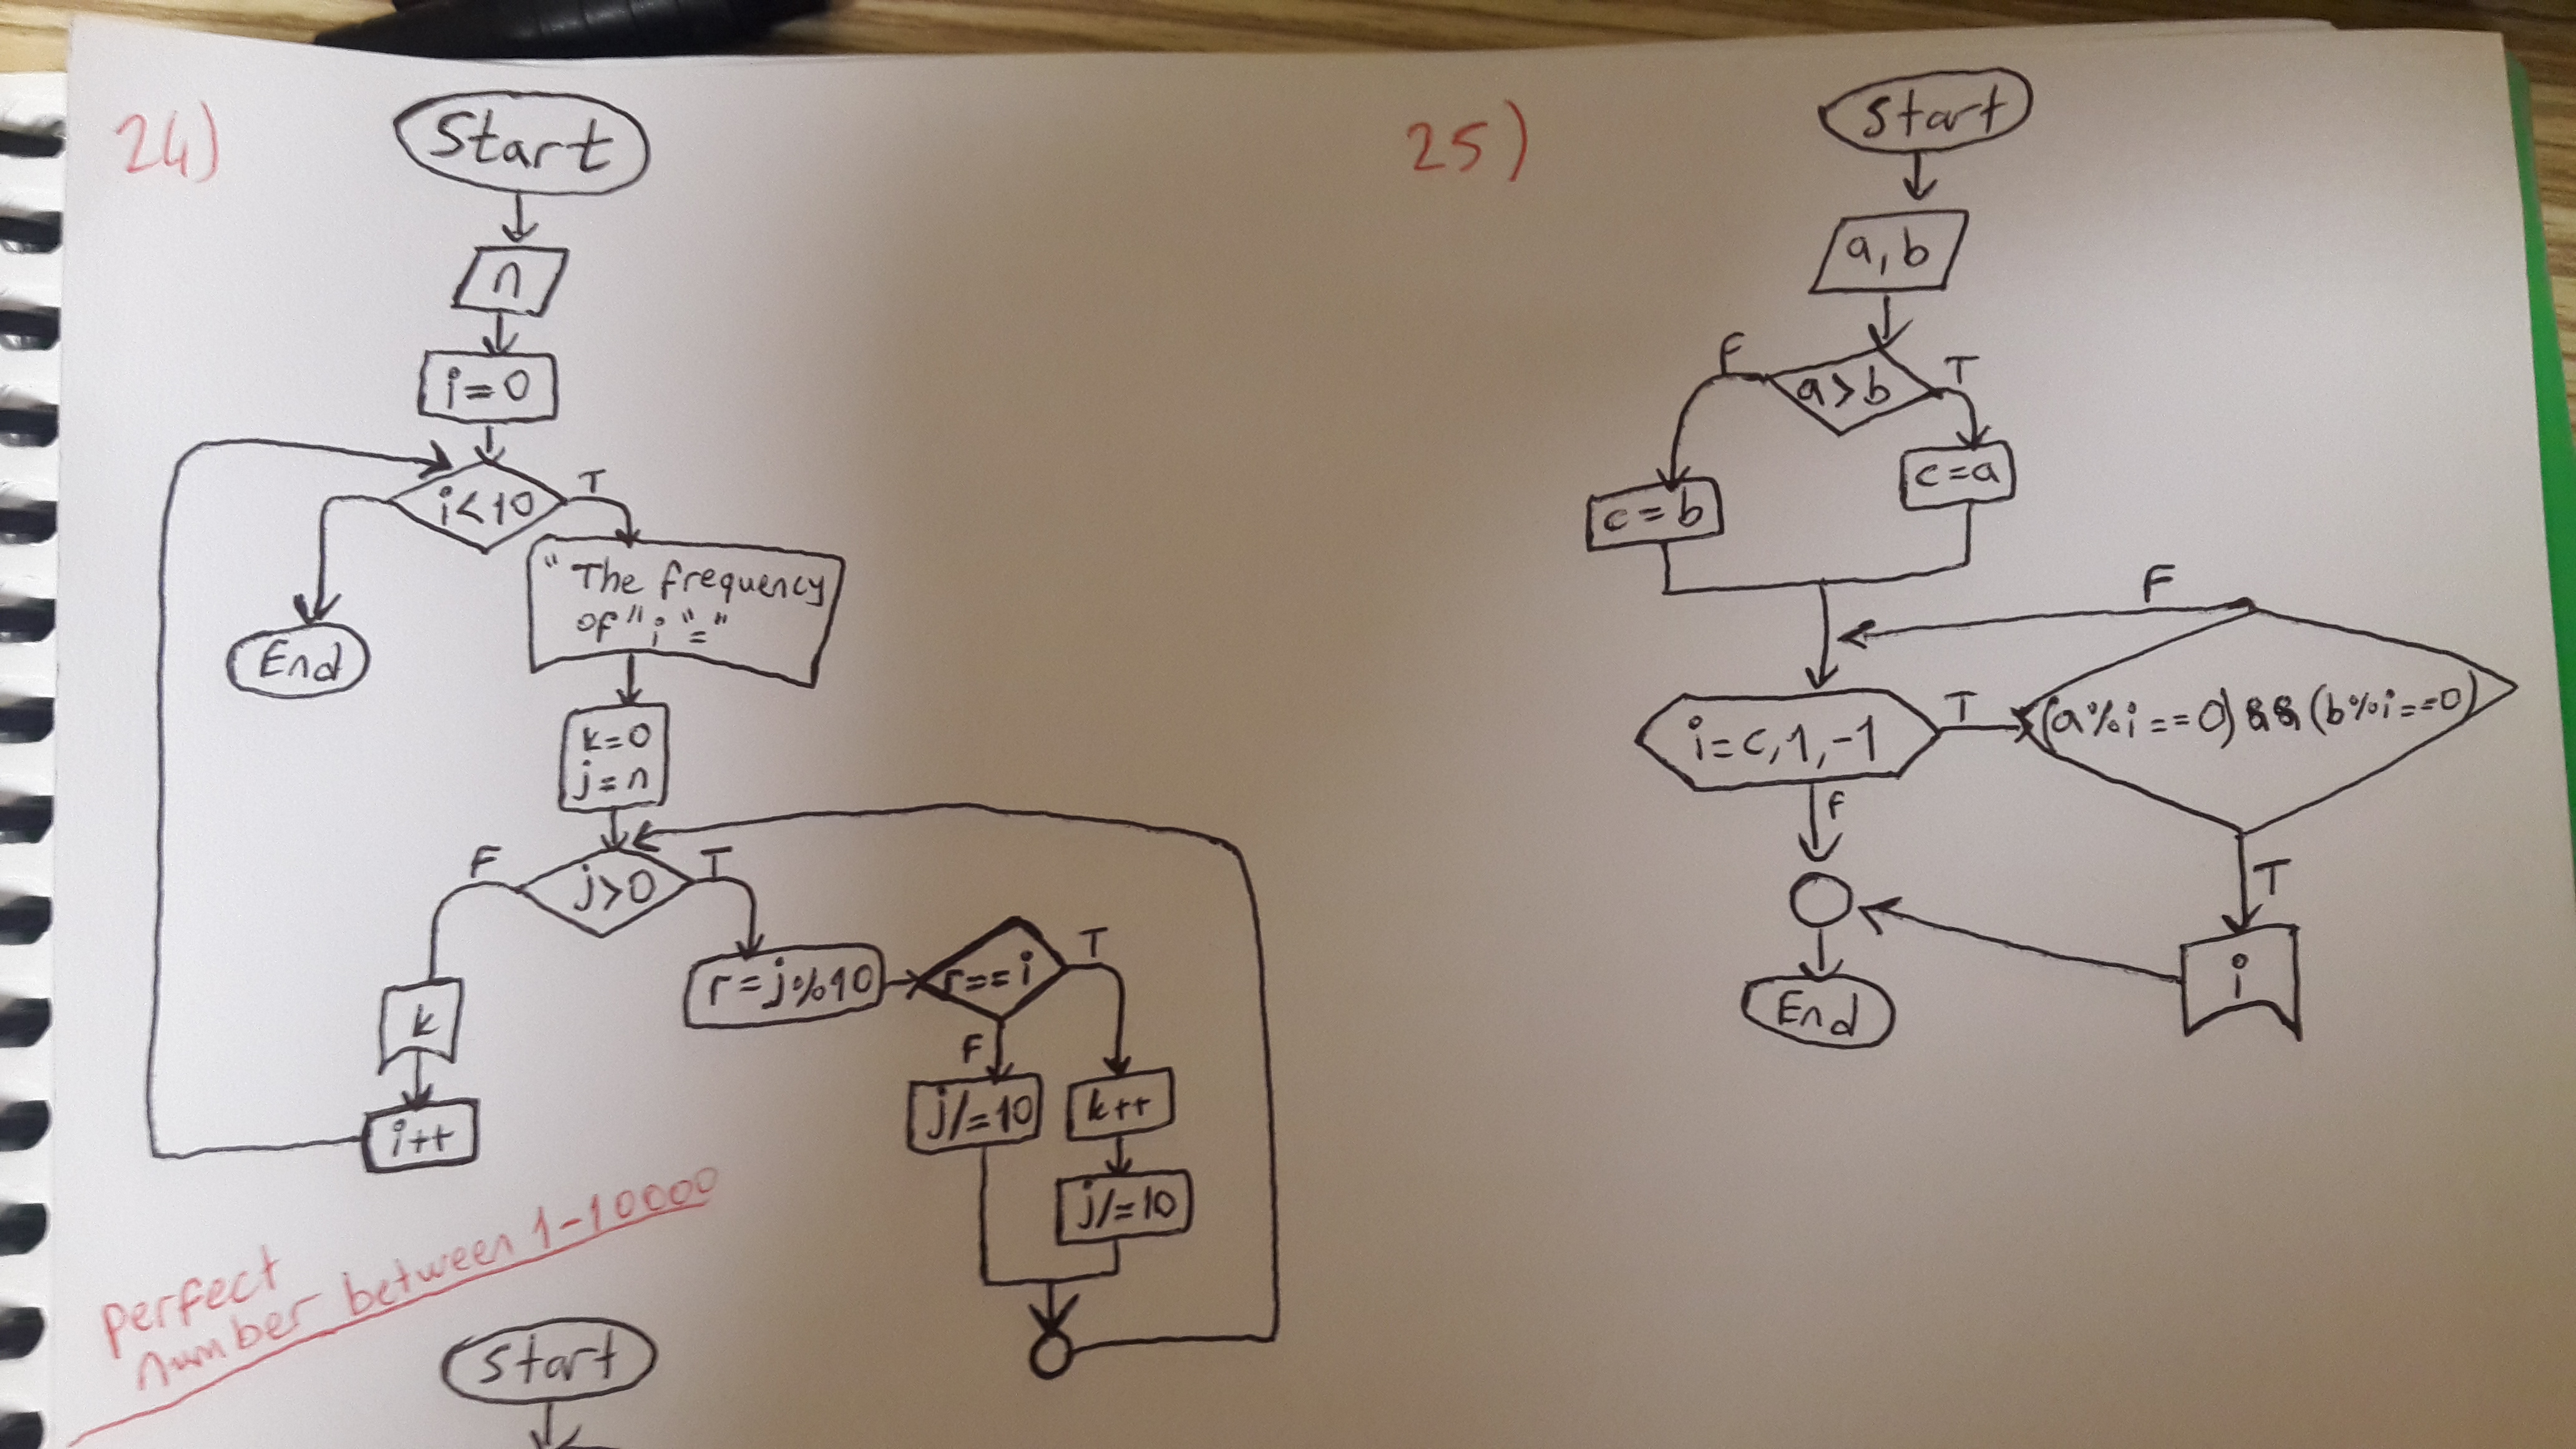 24)
Start
n
i=0
i<10
T
End
"The frequency
of" i "="
k=0
j=n
j>0
F
T
k
i++
r=j%10
r==i
T
F
j/=10
k++
j/=10
perfect
number between 1-10000
Start
25)
Start
a,b
a>b
F
T
c=b
c=a
F
i=c,1,-1
T
(a%i==0)&&(b%i==0)
F
T
i
End